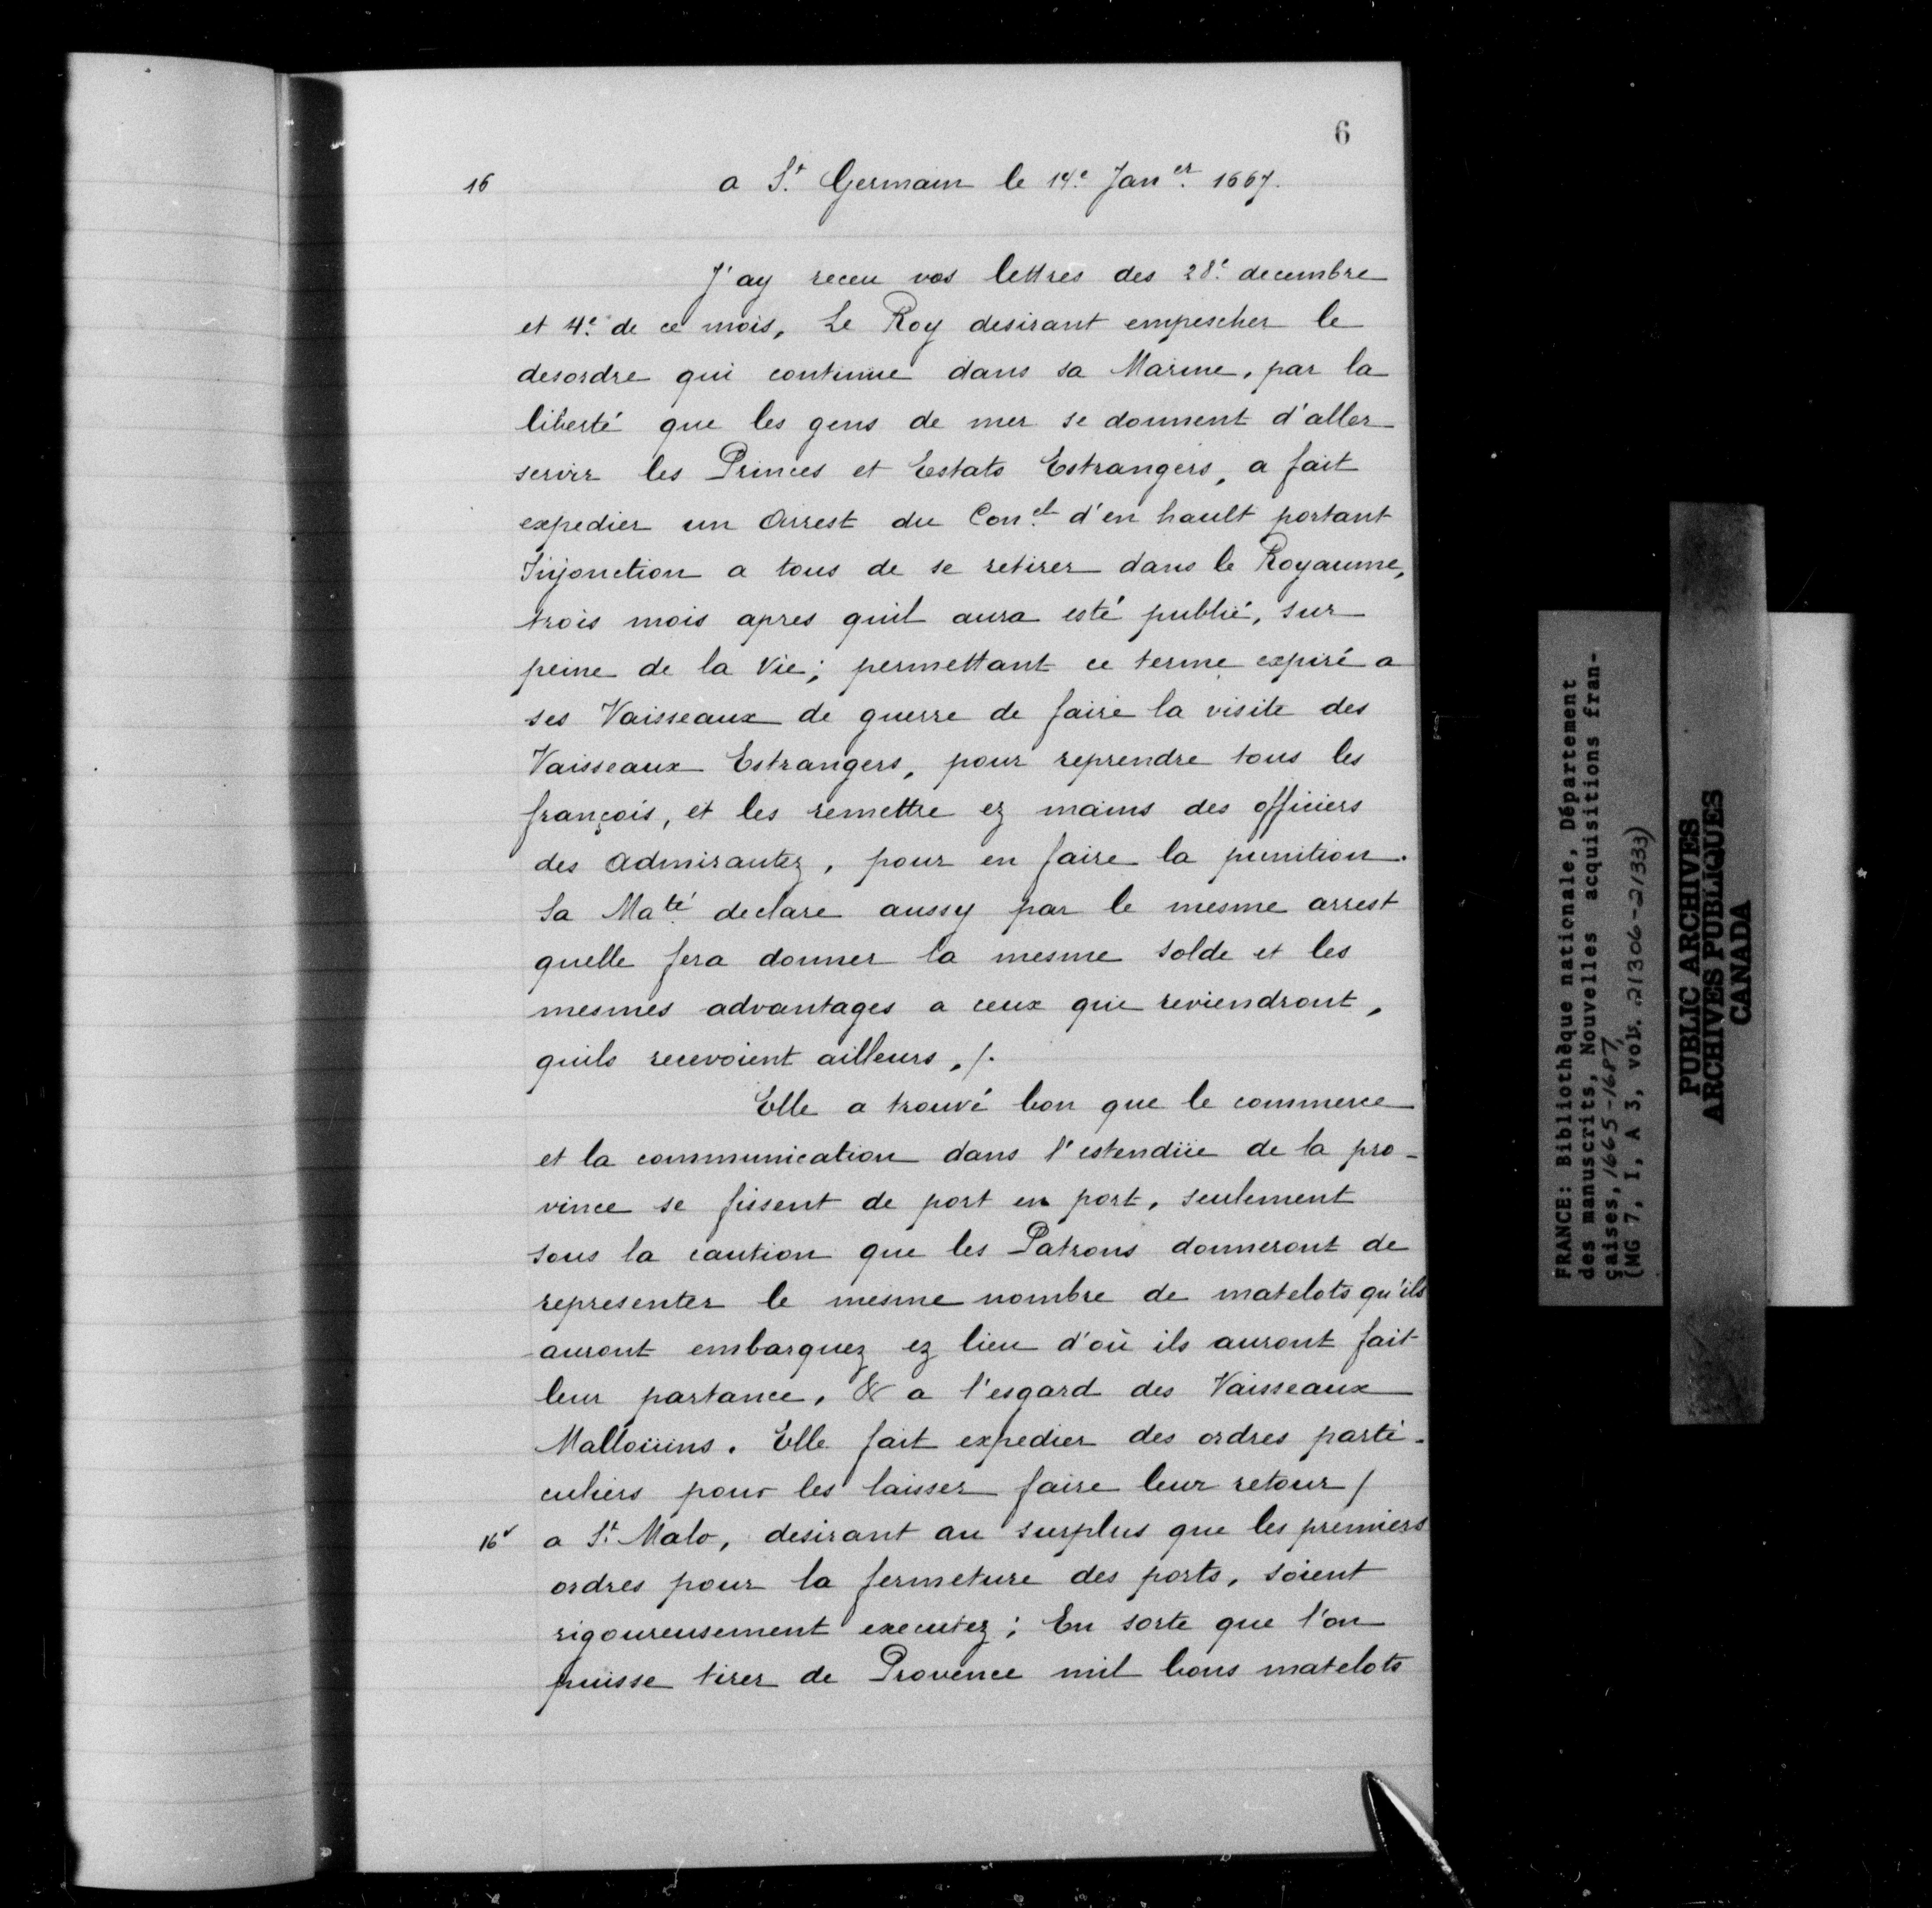 6
16 a St. Germain le 14e. Janer. 1667.
J'ay receu vos lettres des 28e. decembre
et 4e. de ce mois, Le Roy desirant empescher le
desordre qui continüe dans sa Marine, par la
liberté que les gens de mer se donnent d'aller
servir les Princes et Estats Estrangers, a fait
expedier un Arrest du Conel. d'en hault portant
Injonction a tous de se retirer dans le Royaume,
trois mois apres quil aura esté publié, sur
peine de la Vie; permettant ce terme expiré a
ses Vaisseaux de guerre de faire la visite des
Vaisseaux Estrangers, pour reprendre tous les
françois, et les remettre ez mains des officiers
des admirautez, pour en faire la punition.
Sa Maté. declare aussy par le mesme arrest
quelle fera donner la mesme solde et les
mesmes advantages a ceux qui reviendront,
quils recevoient ailleurs, /.
Elle a trouvé bon que le commerce
et la communication dans l'estendüe de la pro-
vince se fissent de port en port, seulement
sous la caution que les Patrons donneront de
representer le mesme nombre de matelots qu'ils
auront embarquez ez lieu d'où ils auront fait
leur partance, & a l'esgard des Vaisseaux
Malloüins. Elle fait expedier des ordres parti-
culiers pour les laisser faire leur retour /
16v a St. Malo, desirant au surplus que les premiers
ordres pour la fermeture des ports, soient
rigoureusement executez; En sorte que l'on
puisse tirer de Provence mil bons matelots
FRANCE: Bibliothèque nationale, Département
des manuscrits, Nouvelles acquisitions fran-
çaises, 1665-1687,
(MG 7, I, A 3, vol. 21306-21333)
PUBLIC ARCHIVES
ARCHIVES PUBLIQUES
CANADA